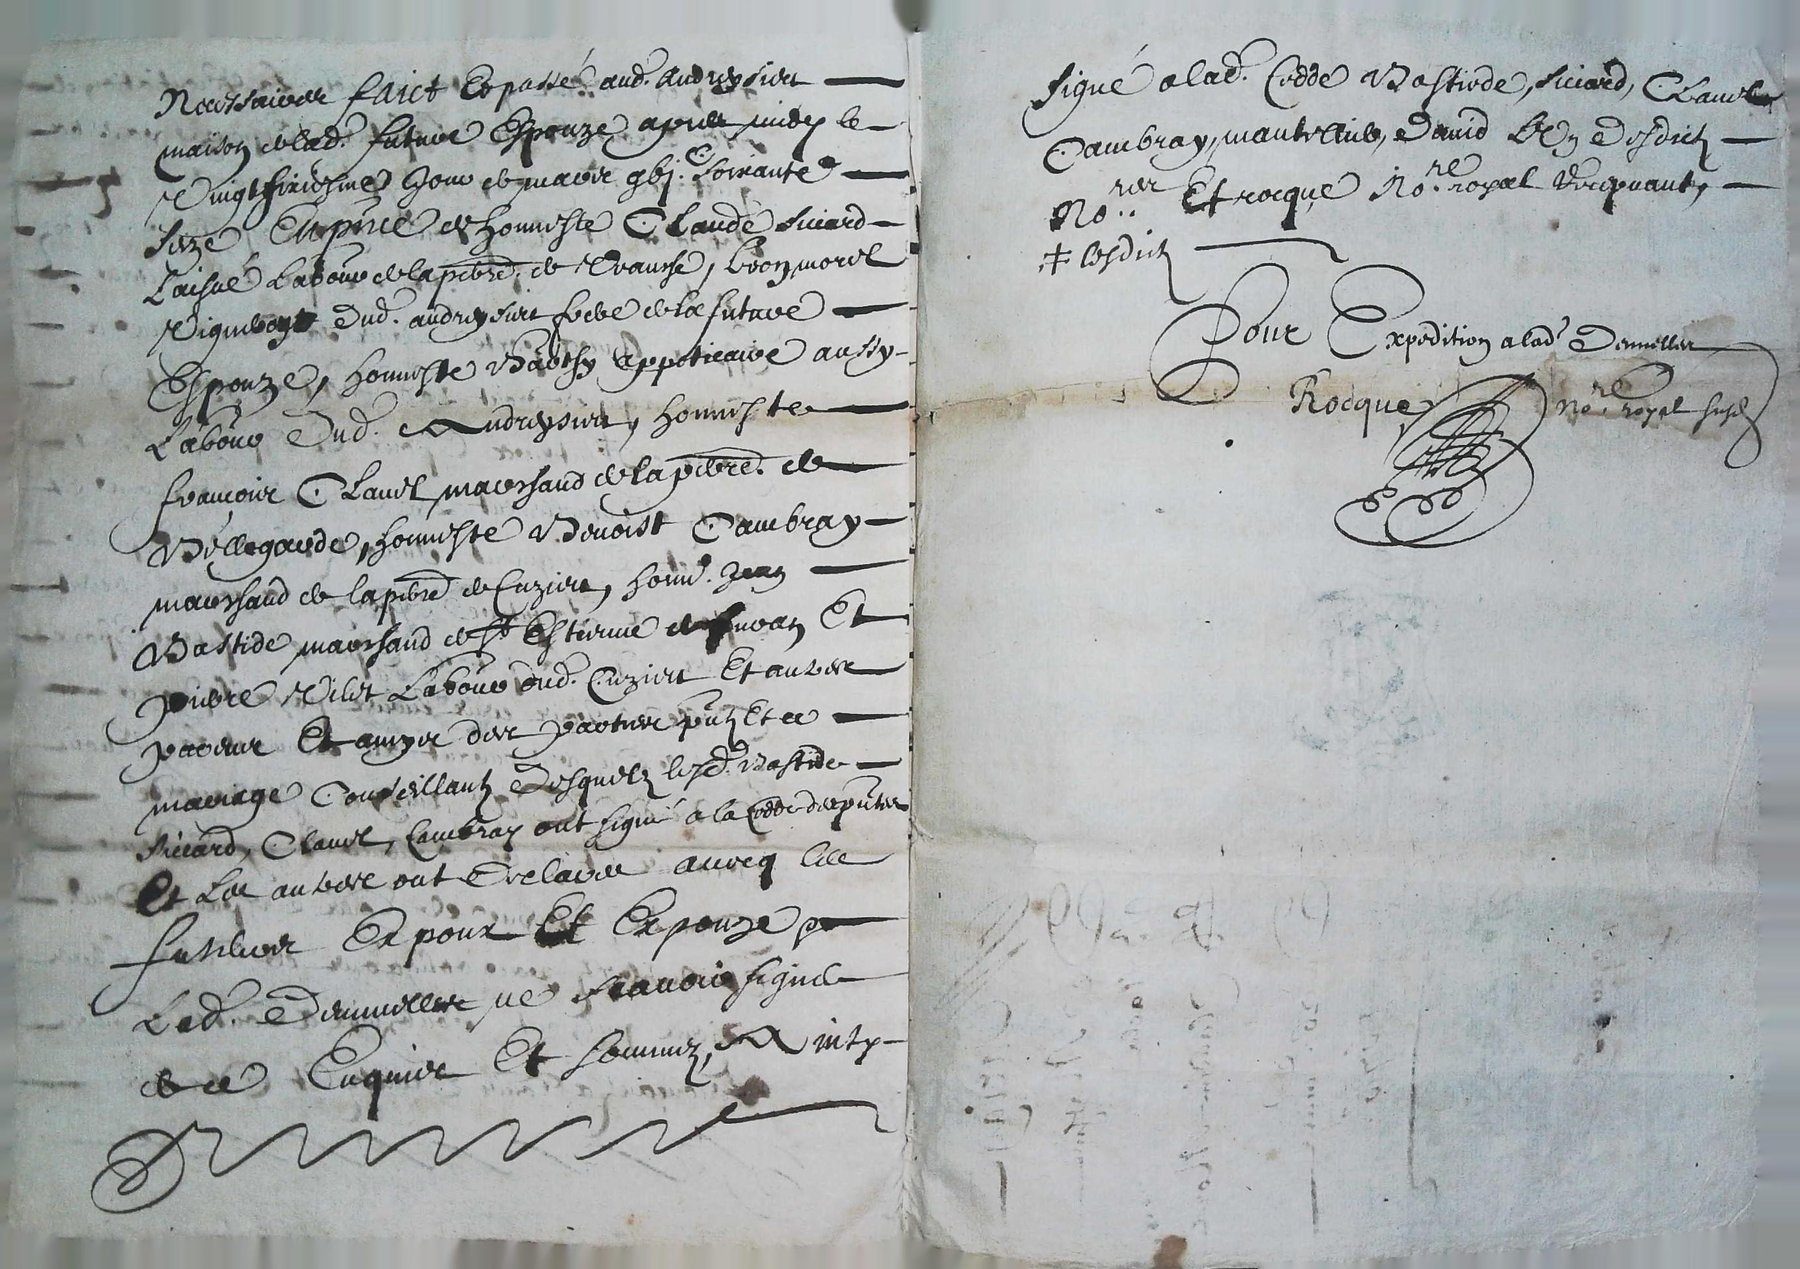 Necessaires faict Et passé aud. Andrezieu
maison de lad. future Espouze apres midy le
Vingt sixiesme Jour de mars gbj.c soixante
seze En pnce de honneste Claude Siccard
Laisné Labour de la pbre d. de Veausse, Leon morel
Vigneron dud. andrezieu frere de la future
Espouze, honneste appoticaire aussy
Labour dud. Andrezieu, honneste
francois Clavel marchand de la pbre d. de
Bellegarde, honneste Benoist Cambray
marchand de la pbre d. de Cuzieu, hone. Jean
Bastide marchand de St Estienne de furan Et
pierre Labour dud. Cuzieu Et autres
parens Et amys des parties pntz Et ce
mariage Conseillantz desquelz lesd. Bastide
Siccard, Clavel, Cambray ont signé a la Cedde des pntes
Et Les autres ont declaire avecq les
futeurs Expoux Et Expouze
Lad. Damoiselle ne scavoir signer
de ce Enquis Et sommez, Ainsy
signé a lad. Cedde Bastide, siccard, Clavel
Cambray, David desdictz
No.res Et rocque No.re royal recepvant,
‡ lesdictz
Pour Expedition a lad. Damoiselle
Rocque No.re royal subzsé